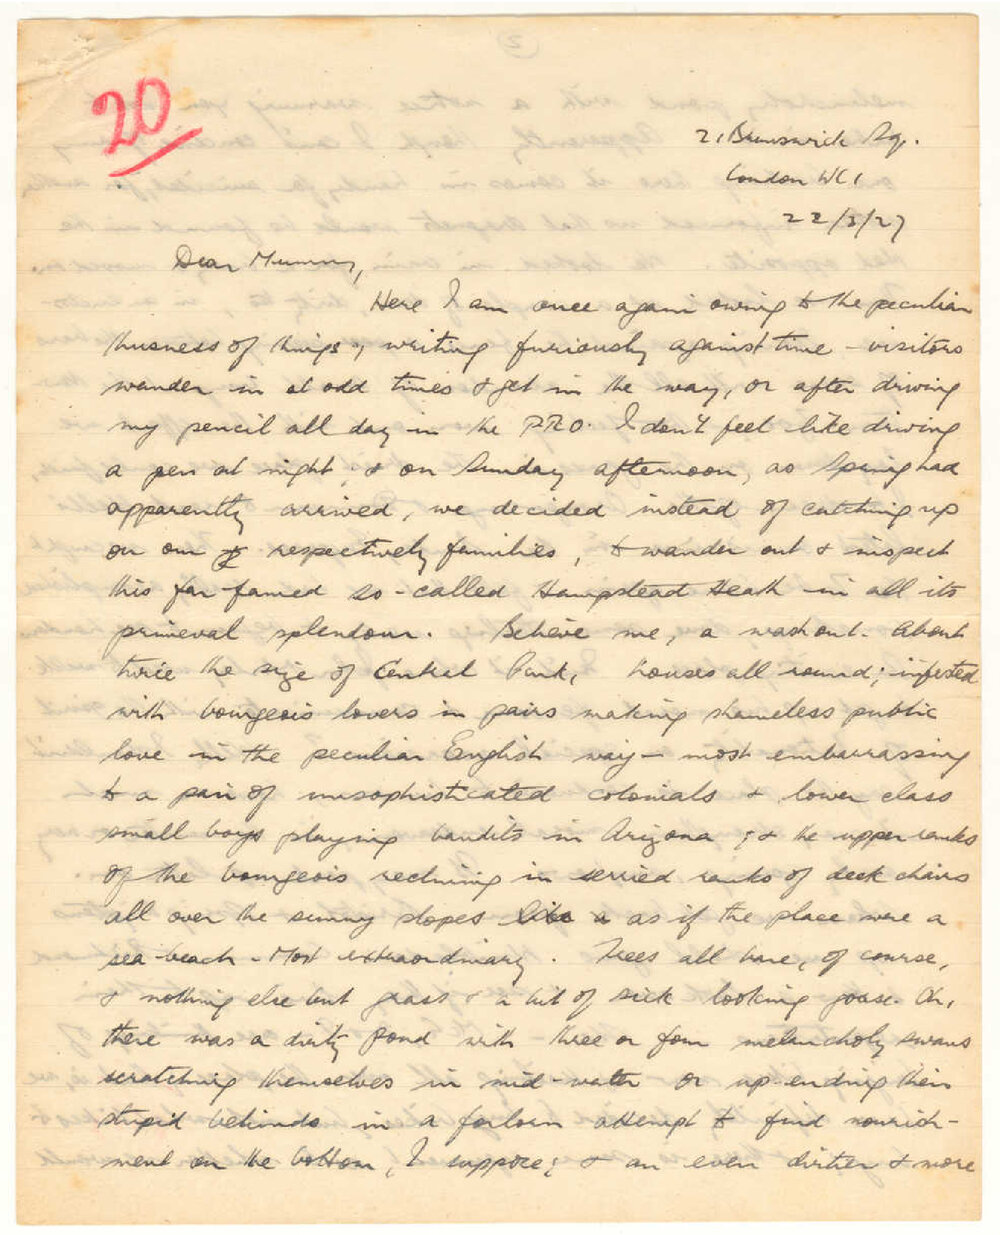 20
21 Brunswick Sq.
London WC1
22/3/27
Dear Mummy,
Here I am once again owing to the peculiar
thusness of things, writing furiously against time – visitors
wander in at odd times & get in the way, or after driving
my pencil all day in the PRO. I don't feel like driving
a pen at night; & on Sunday afternoon, as Spring had
apparently arrived, we decided instead of catching up
on our respectively families, to wander out & inspect
this far-famed so-called Hampstead Heath in all its
primeval splendour. Believe me, a washout. About
twice the size of Central Park, houses all round; infested
with bourgeois lovers in pairs making shameless public
love in the peculiar English way – most embarrassing
to a pair of unsophisticated colonials & lower class
small boys playing bandits in Arizona; & the upper ranks
of the bourgeois reclining in serried ranks of deck chairs
all over the sunny slopes like a as if the place were a
sea-beach. Most extraordinary. Trees all bare, of course,
& nothing else but grass & a bit of sick looking gorse. Oh,
there was a dirty pond with three or four melancholy swans
scratching themselves in mid-water or up-ending their
stupid behinds in a forlorn attempt to find nourish-
ment on the bottom, I suppose; & an even dirtier & more